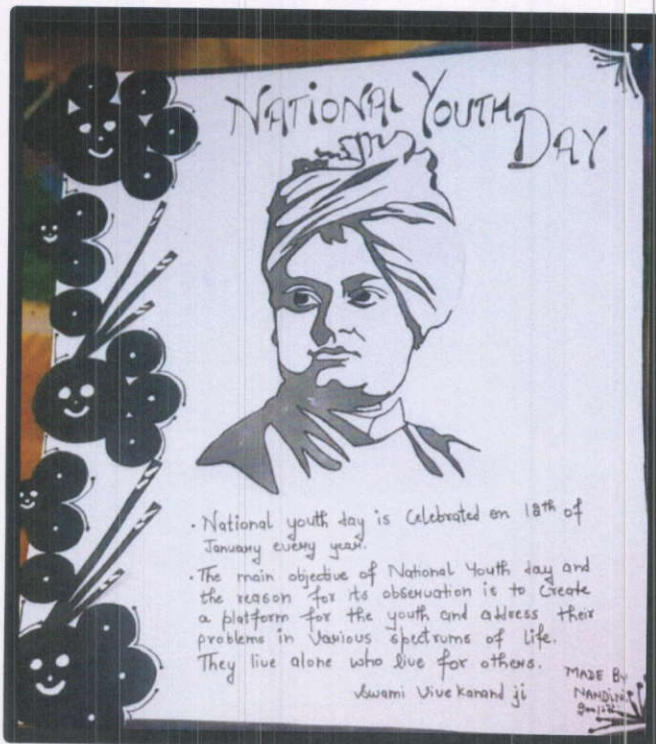 NATIONAL YOUTH DAY
• National youth day is Celebrated on 12th of
January every year.
• The main objective of National Youth day and
the reason for its observation is to Create
a platform for the youth and address their
problems in Various spectrums of life.
They live alone who live for others.
Swami Vivekanand ji
MADE By
NANDINI